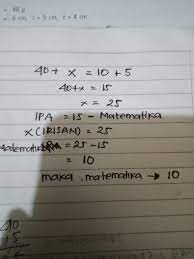 = 48 g
= 6 cm, l = 5 cm, t = 4 cm
40 + x = 10 + 5
40 + x = 15
x = 25
IPA = 15 - Matematika
x (IRISAN) = 25
Matematika = 25 - 15
= 10
maka matematika → 10
40